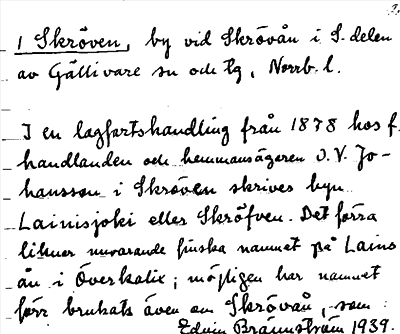 1 Skröven, by vid Skrövån i S. delen
av Gällivare sn och tg, Norrb. l.
I en lagfartshandling från 1878 hos f.
handlanden och hemmansägeren O. V. Jo-
hansson i Skröven skrives byn
Lainisjoki eller Skröfven. Det förra
liknar nuvarande finska namnet på Lains
ån i Överkalix; möjligen har namnet
förr brukats även om Skrövån, som
Edvin Brännström 1939.